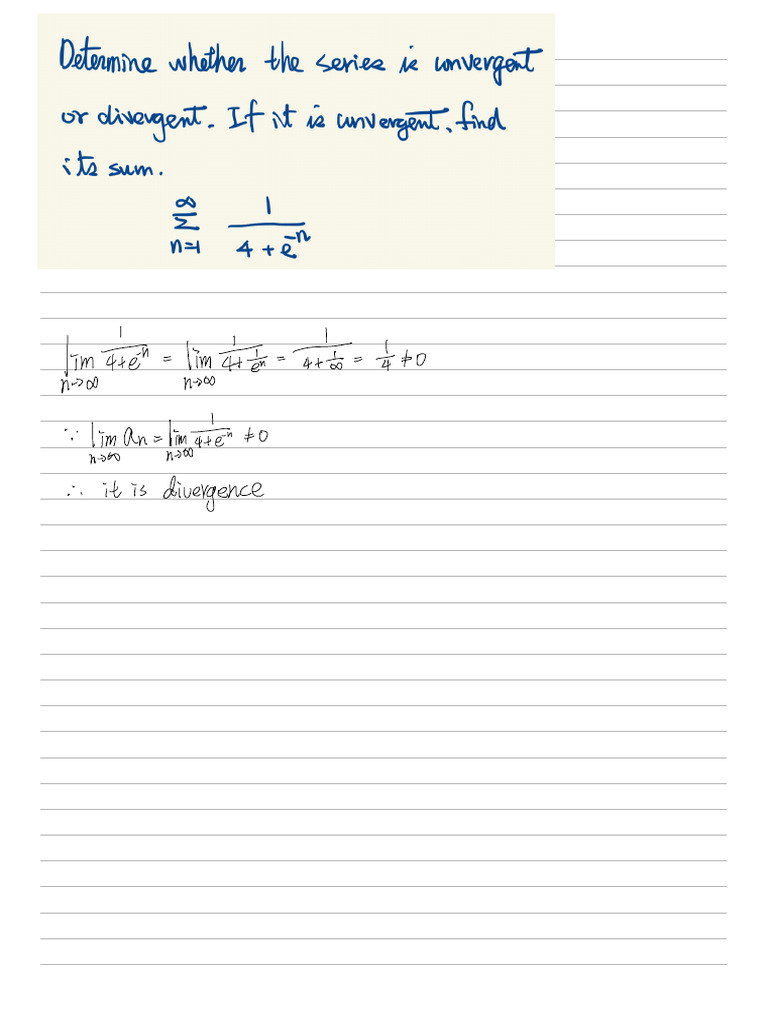 Determine whether the series is convergent
or divergent. If it is convergent, find
its sum.
∞
Σ 1/(4 + e^{-n})
n=1
lim_{n→∞} 1/(4+e^{-n}) = lim_{n→∞} 1/(4+1/e^n) = 1/(4+1/∞) = 1/4 ≠ 0
∵ lim_{n→∞} an = lim_{n→∞} 1/(4+e^{-n}) ≠ 0
∴ it is divergence